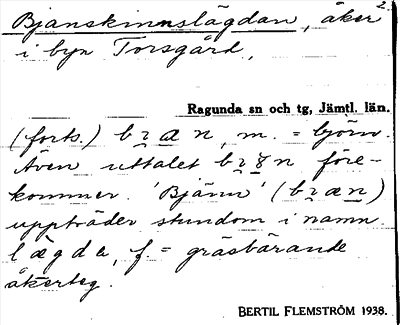 Bjänskinnslägdan, åker 2.
i byn Torsgård,
Ragunda sn och tg, Jämtl. län.
(forts.) bɿan, m. = björn.
Även uttalet bɿ8n före-
kommer. 'Bjänn' (bɿæn)
uppträder stundom i namn.
lægda, f. = gräsbärande
åkerteg.
BERTIL FLEMSTRÖM 1938.